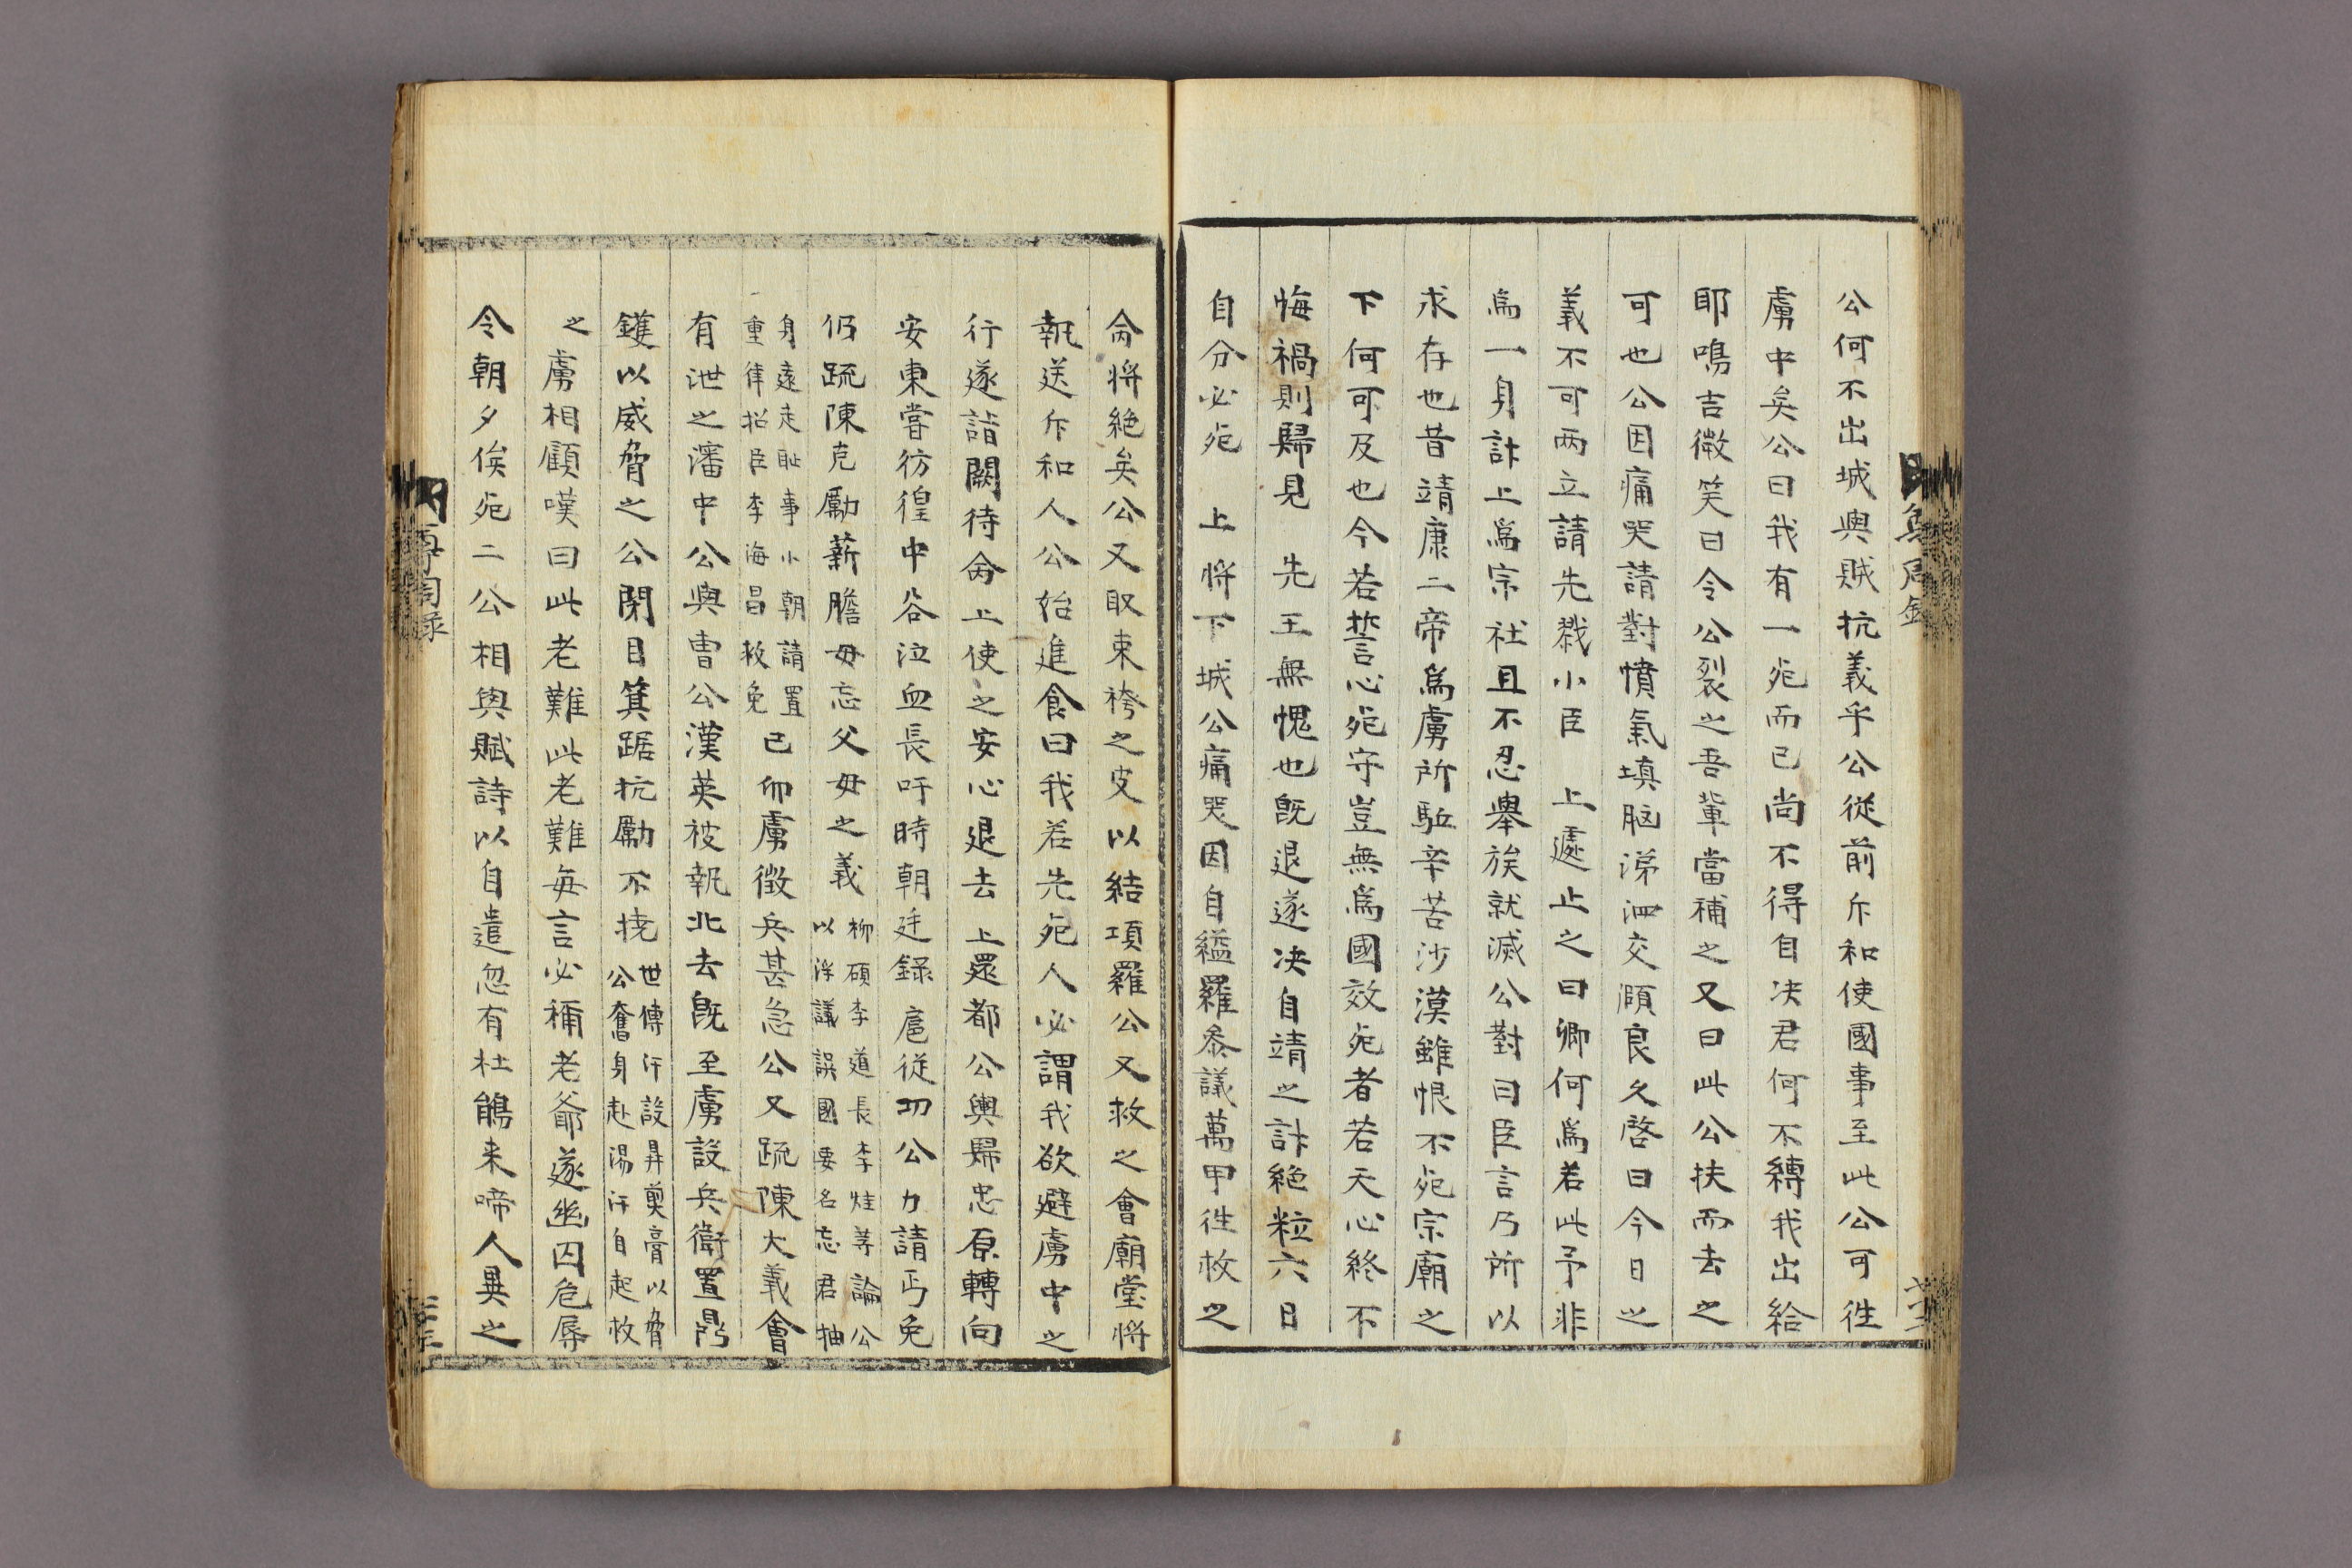 公何不出城與賊抗義乎公從前斥和使國事至此公可徃
虜中矣公曰我有一死而已尚不得自决君何不縛我出給
耶鳴吉微笑曰令公裂之吾輩當補之又曰此公扶而去之
可也公因痛哭請對憤氣塡腦涕泗交頤良久啓曰今日之
義不可两立請先戮小臣　上遽止之曰卿何爲若此予非
爲一身計上爲宗社且不忍舉族就滅公對曰臣言乃所以
求存也昔靖康二帝爲虜所驅辛苦沙漠雖恨不死宗廟之
下何可及也今若誓心死守豈無爲國效死者若天心終不
悔禍則歸見　先王無愧也旣退遂决自靖之計絶粒六日
自分必死　上將下城公痛哭因自縊羅叅議萬甲徃救之
命將絶矣公又取束袴之皮以結項羅公又救之會廟堂將
執送斥和人公始進食曰我若先死人必謂我欲避虜中之
行遂詣闕待命上使之安心退去上還都公輿歸忠原轉向
安東嘗彷徨中谷泣血長吁時朝廷錄扈從功公力請丐免
仍疏陳克勵薪膽毋忘父母之義柳碩李道長李烓等論公
以浮議誤國要名忘君抽
身遠走耻事小朝請置
重律招臣李海昌救免己卯虜徴兵甚急公又疏陳大義會
有泄之瀋中公與曺公漢英被執北去旣至虜設兵衛置鼎
鑊以威脅之公閉目箕踞抗勵不撓世傳汗設鼎煑膏以脅
公奮身赴湯汗自起救
之虜相顧嘆曰此老難此老難每言必稱老爺遂幽囚危辱
令朝夕俟死二公相與賦詩以自遣忽有杜鵑来啼人異之
尊周錄